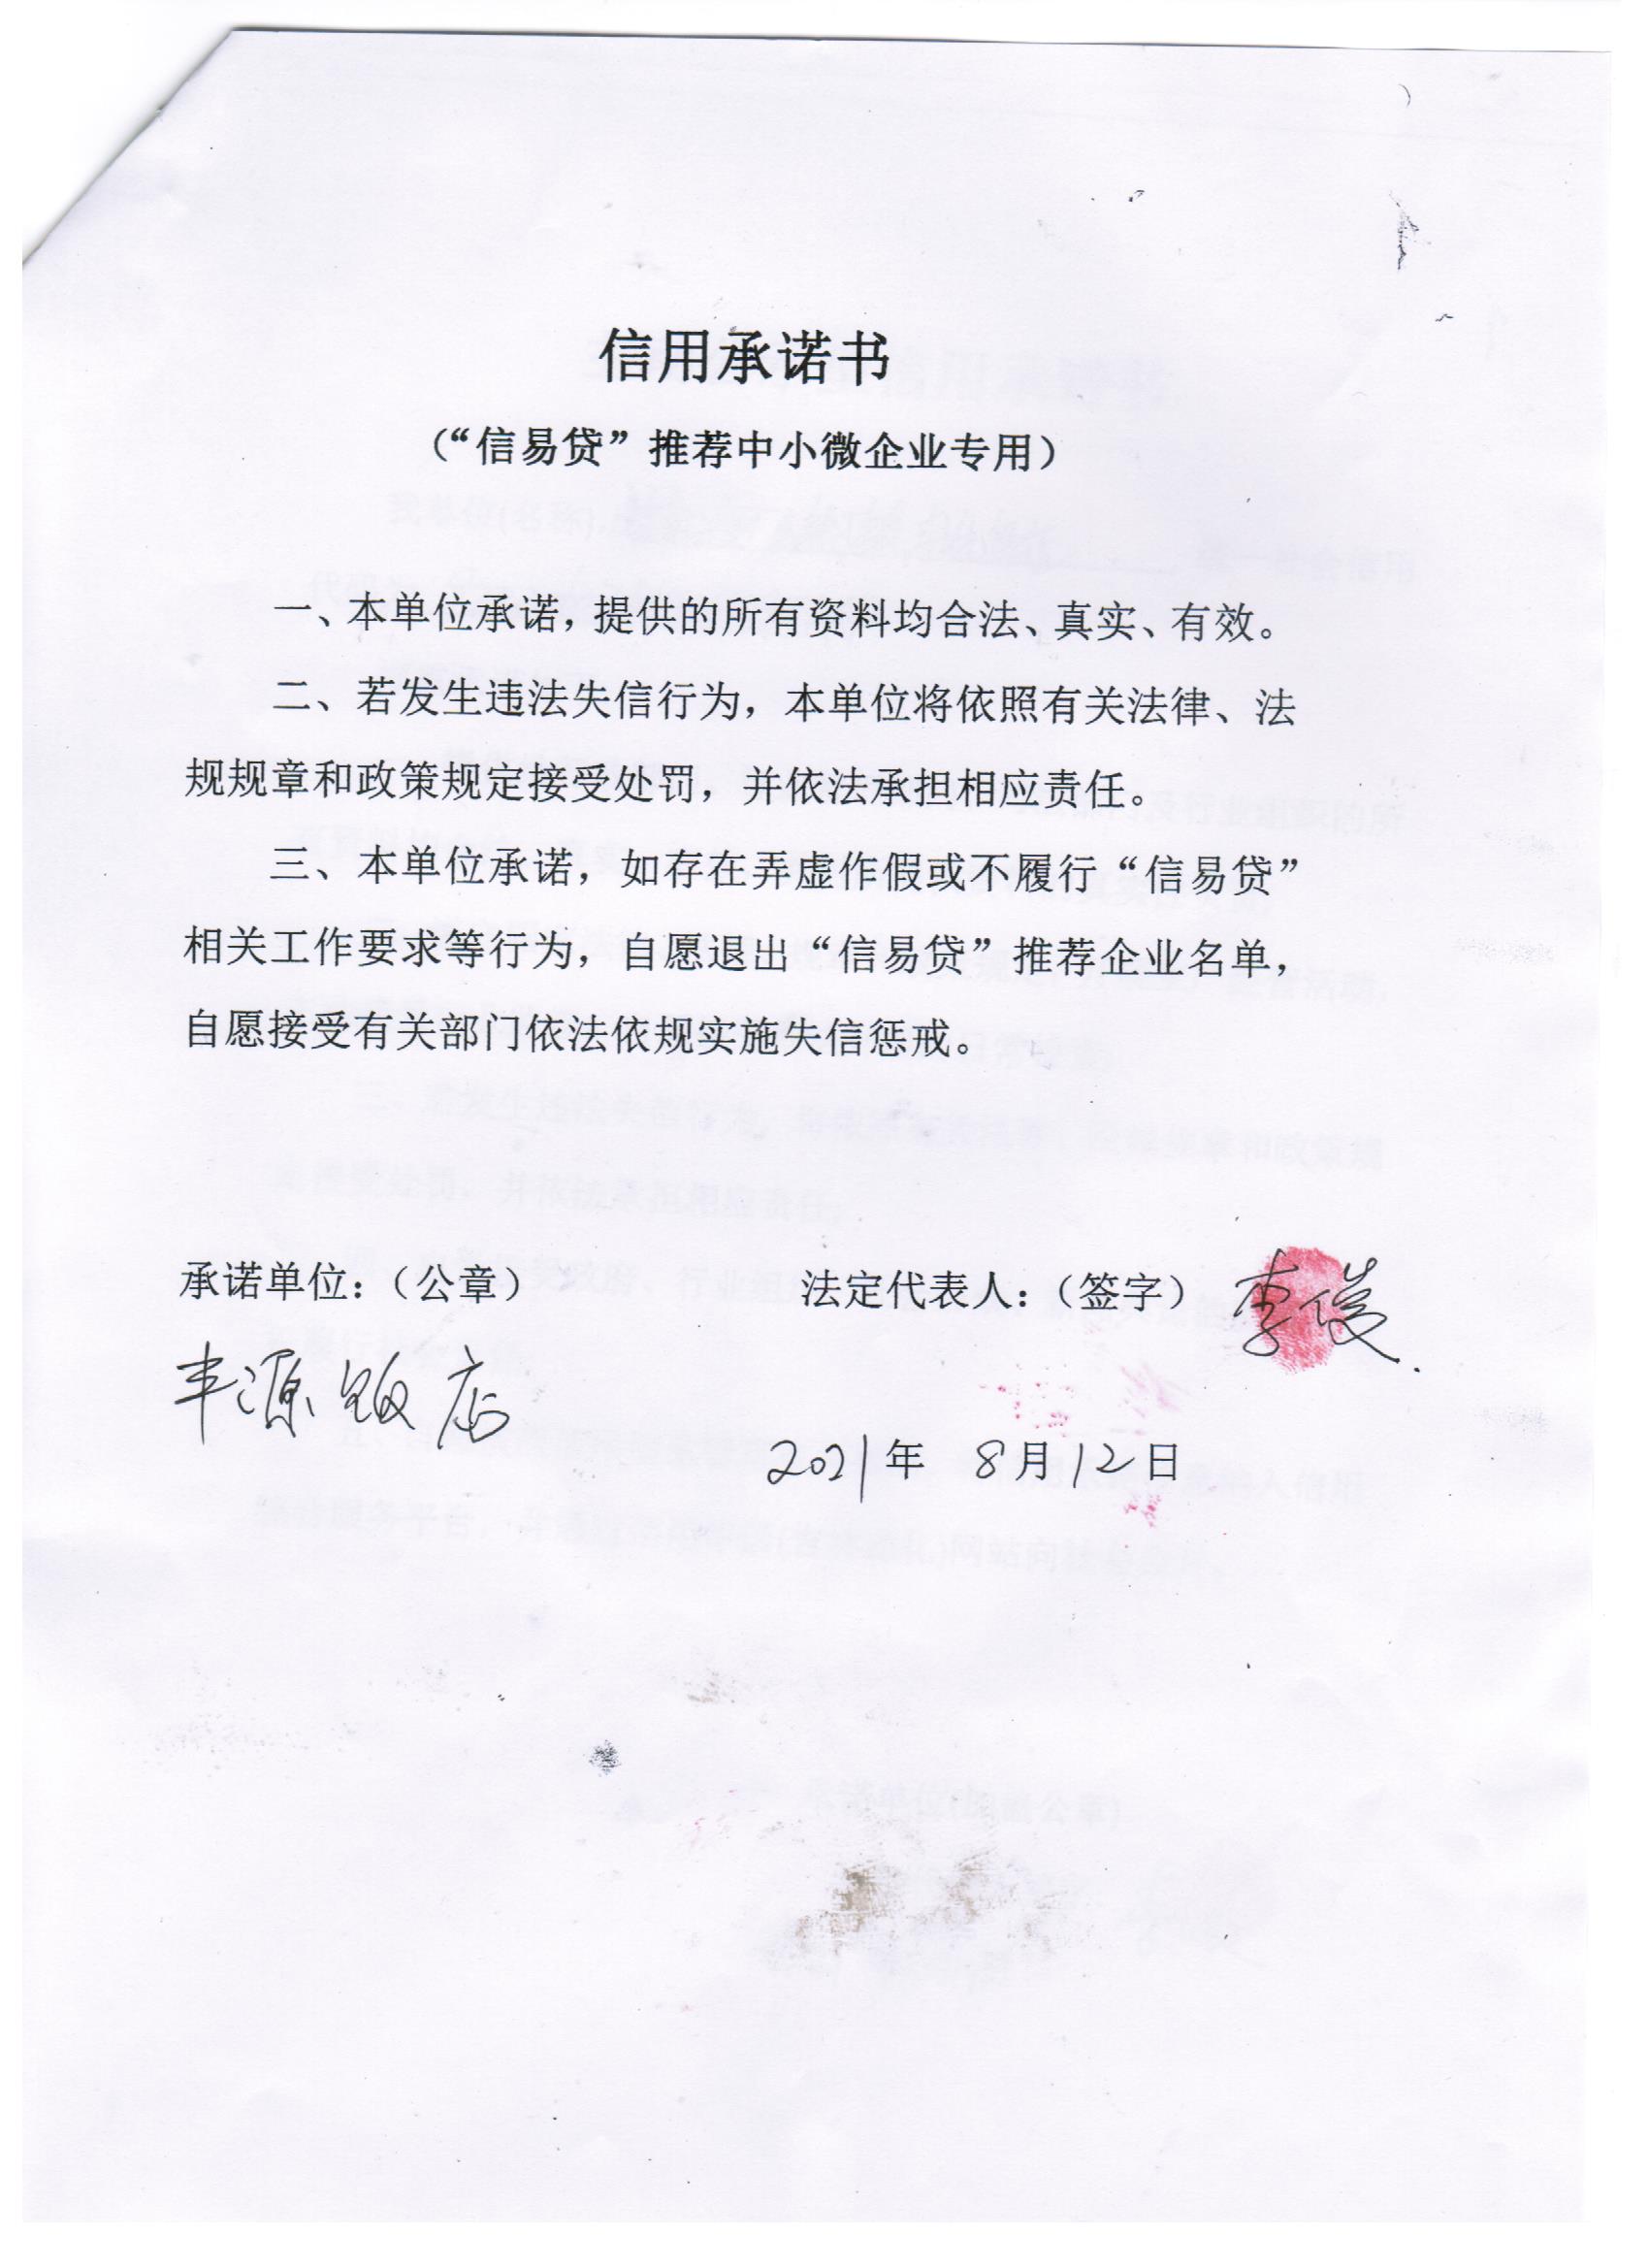 信用承诺书
（“信易贷”推荐中小微企业专用）
一、本单位承诺，提供的所有资料均合法、真实、有效。
二、若发生违法失信行为，本单位将依照有关法律、法
规规章和政策规定接受处罚，并依法承担相应责任。
三、本单位承诺，如存在弄虚作假或不履行“信易贷”
相关工作要求等行为，自愿退出“信易贷”推荐企业名单，
自愿接受有关部门依法依规实施失信惩戒。
承诺单位：（公章） 法定代表人：（签字） 李俊
丰源饭店
2021年 8月12日